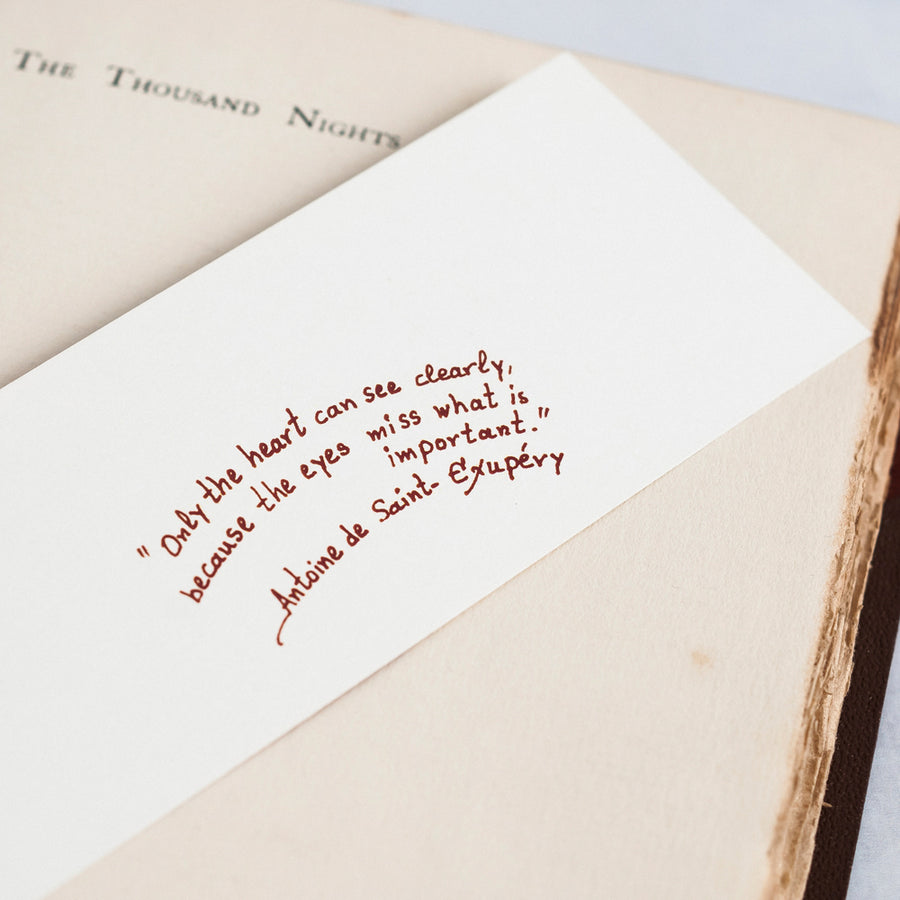 THE THOUSAND NIGHTS
"Only the heart can see clearly,
because the eyes miss what is
important."
Antoine de Saint-Exupéry